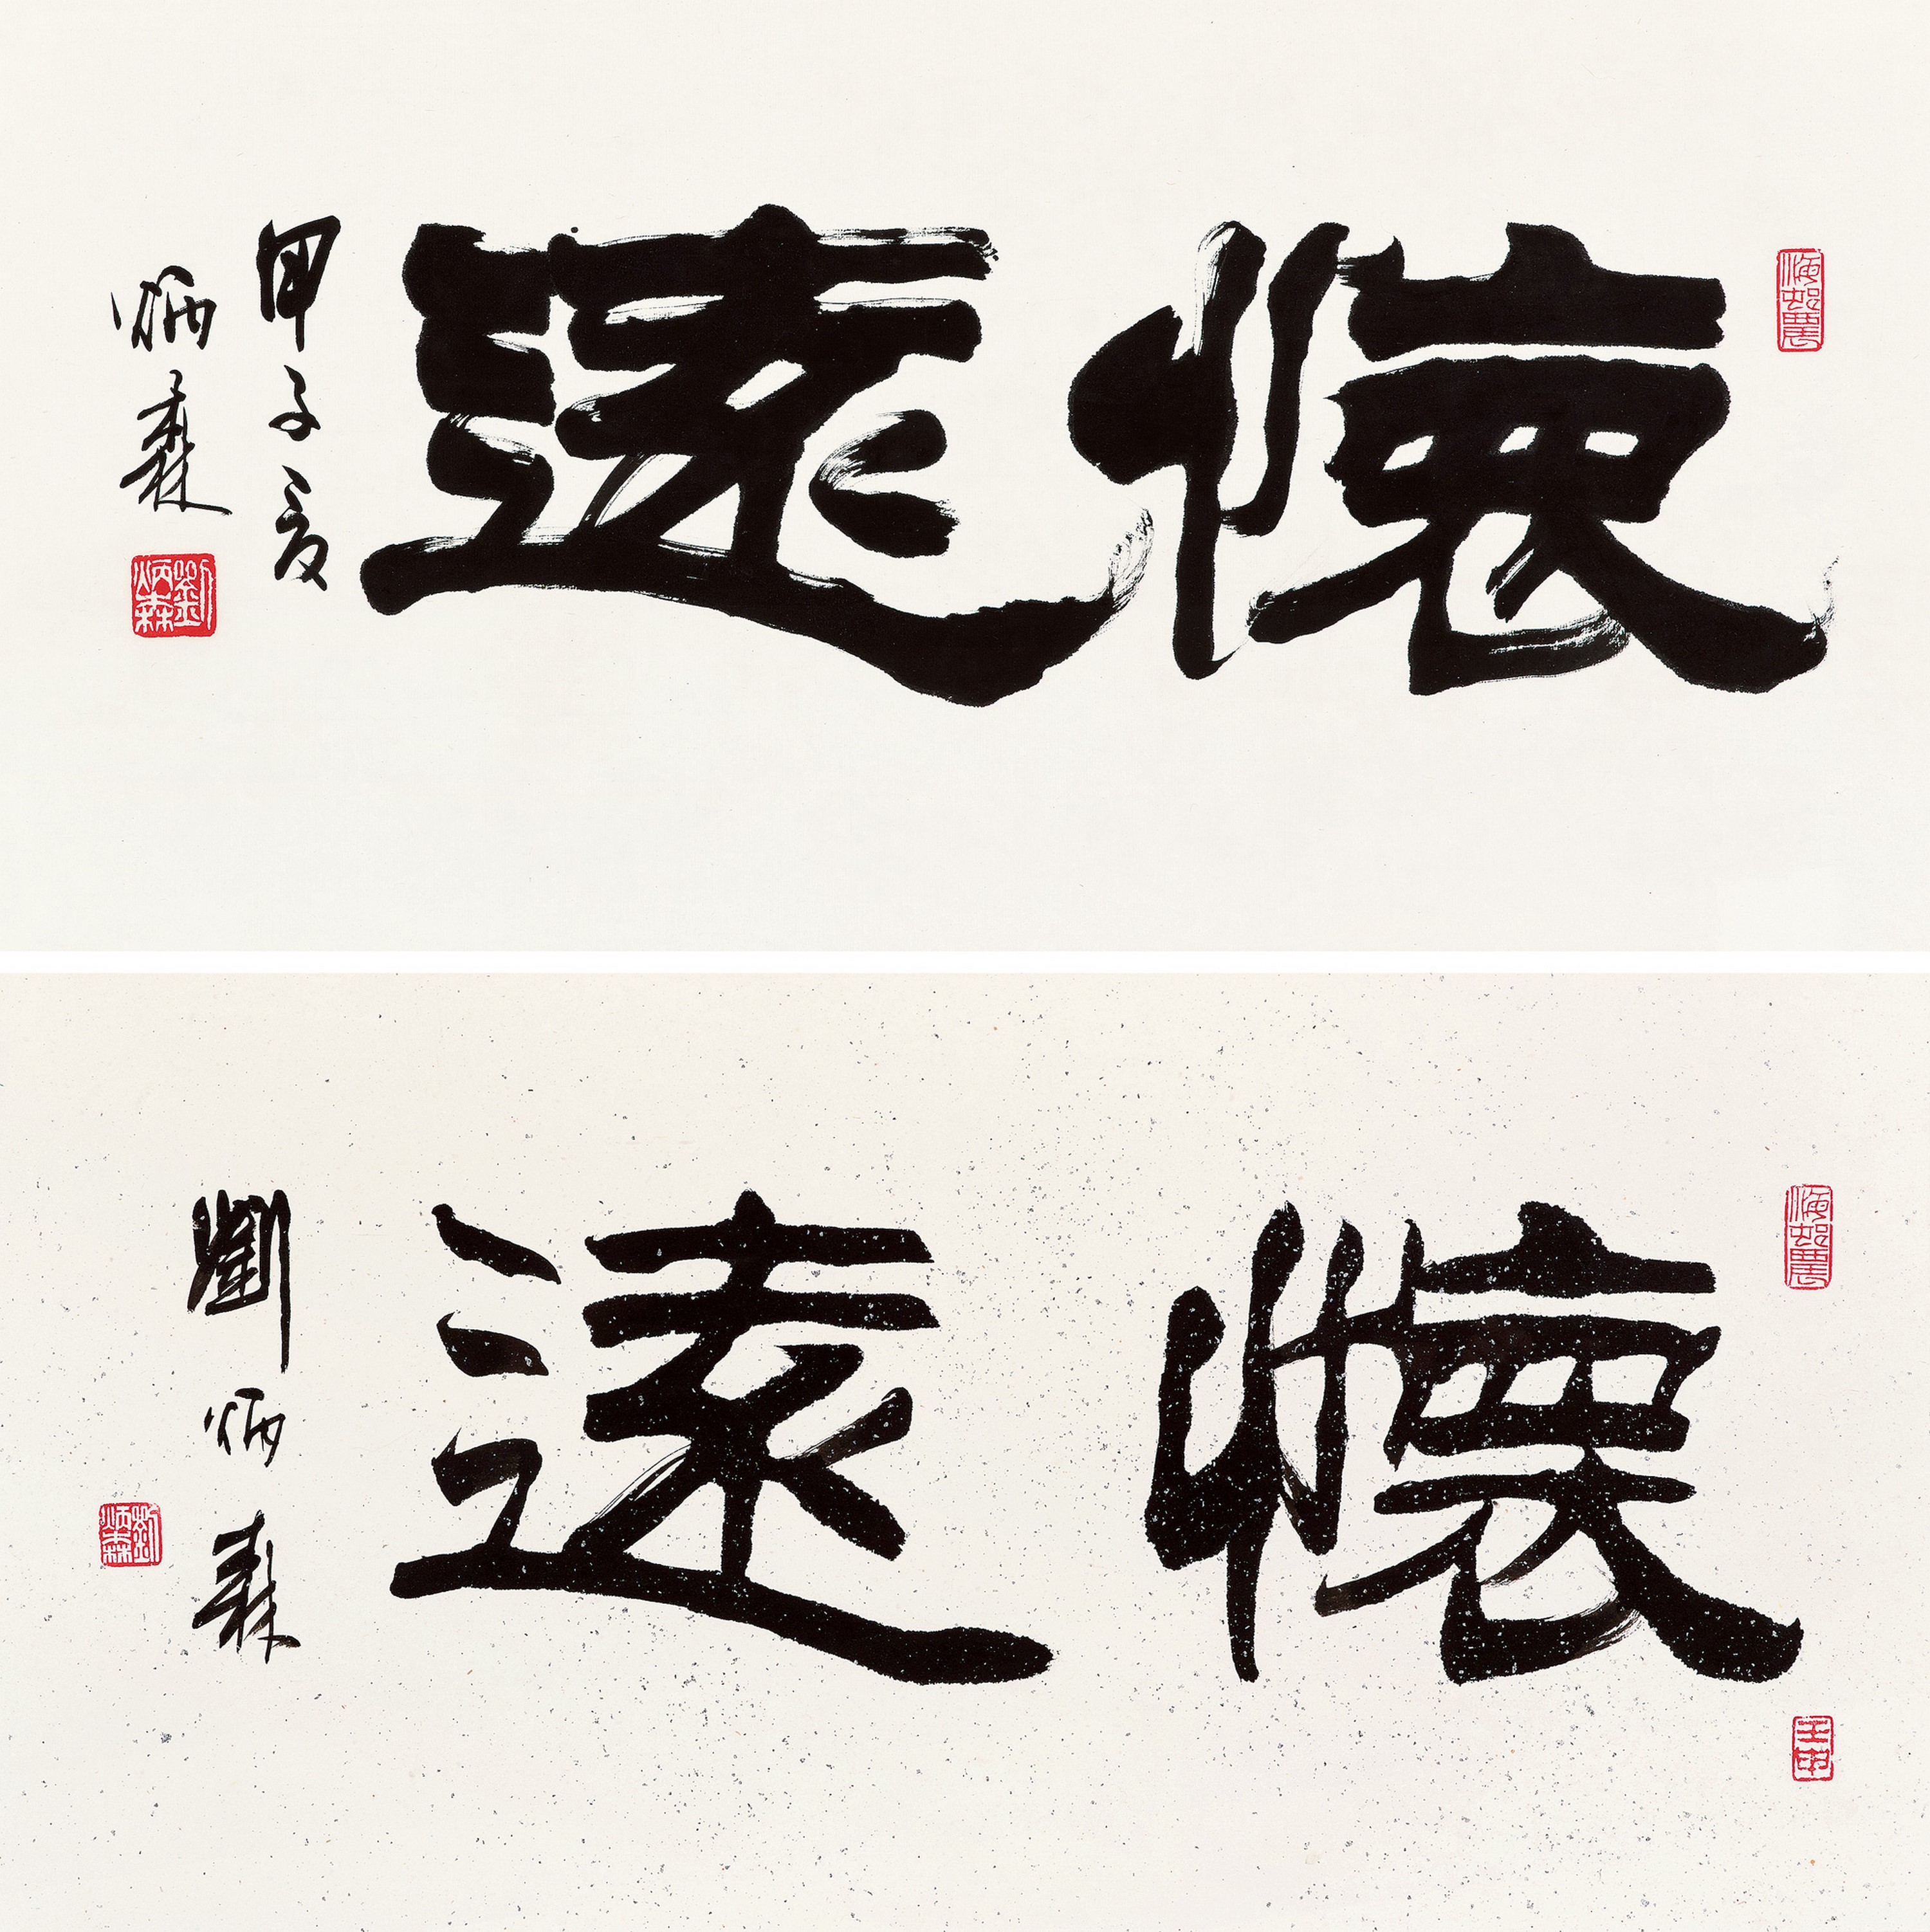 海邨農
懷遠
甲子夏
炳森
劉炳森
海邨農
壬申
懷遠
劉炳森
劉炳森